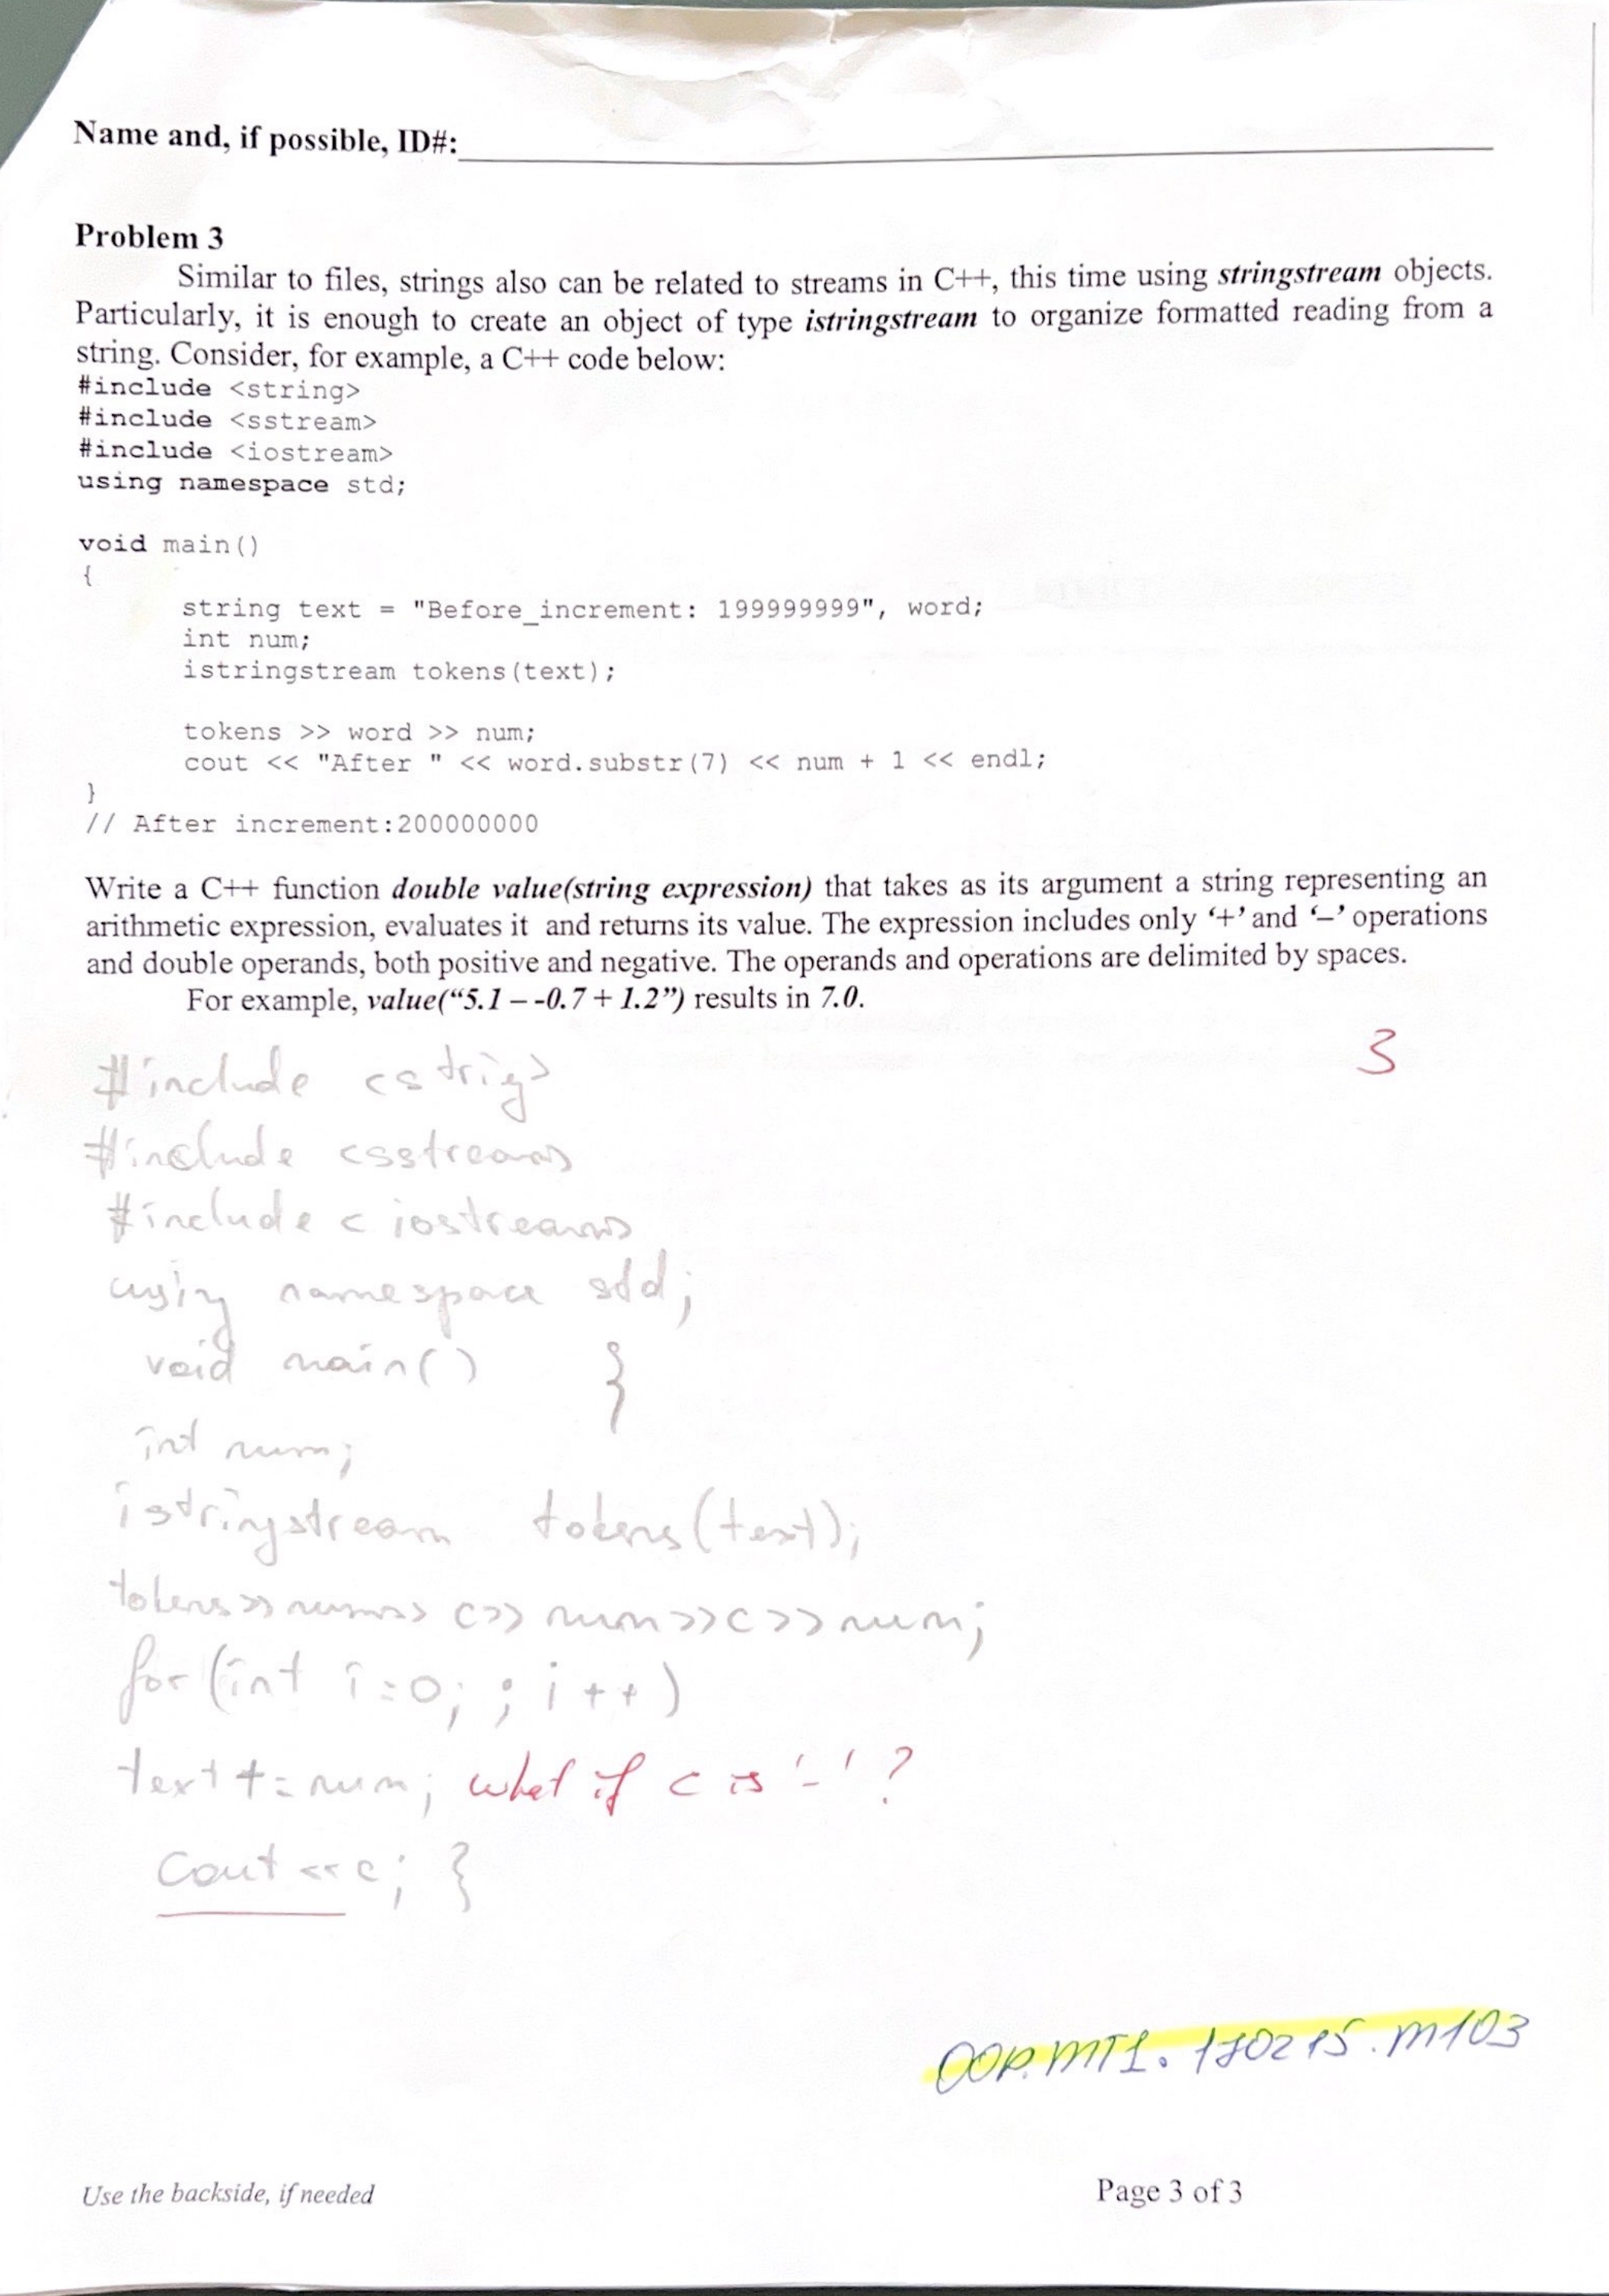 Name and, if possible, ID#:
Problem 3
Similar to files, strings also can be related to streams in C++, this time using stringstream objects.
Particularly, it is enough to create an object of type istringstream to organize formatted reading from a
string. Consider, for example, a C++ code below:
#include <string>
#include <sstream>
#include <iostream>
using namespace std;
void main()
{
string text = "Before_increment: 199999999", word;
int num;
istringstream tokens(text);
tokens >> word >> num;
cout << "After " << word.substr(7) << num + 1 << endl;
}
// After increment:200000000
Write a C++ function double value(string expression) that takes as its argument a string representing an
arithmetic expression, evaluates it and returns its value. The expression includes only ‘+’ and ‘–’ operations
and double operands, both positive and negative. The operands and operations are delimited by spaces.
For example, value(“5.1 – -0.7 + 1.2”) results in 7.0.
3
#include <strig>
#include <sstream>
#include < iostream>
using namespace std;
void main() }
int num;
istringstream tokens(text);
tokens>>num>> c>> num>>c>>num;
for(int i=0; ; i++)
text+=num; what if c is '-' ?
cout <<c; }
OOP.MT1.170215.M103
Use the backside, if needed
Page 3 of 3